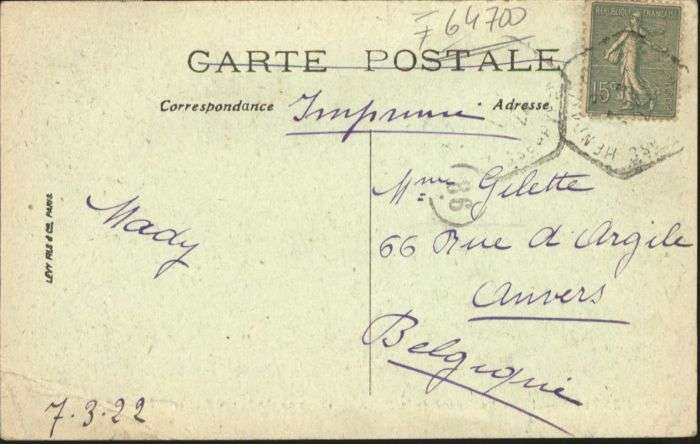 F 64700
CARTE POSTALE
Correspondance
Imprimé
Adresse
RÉPUBLIQUE FRANÇAISE
15c
Mme Gilette
86
66 Rue d'Argile
Anvers
Belgique
Mady
LEVY FILS & Cie, PARIS
7.3.22